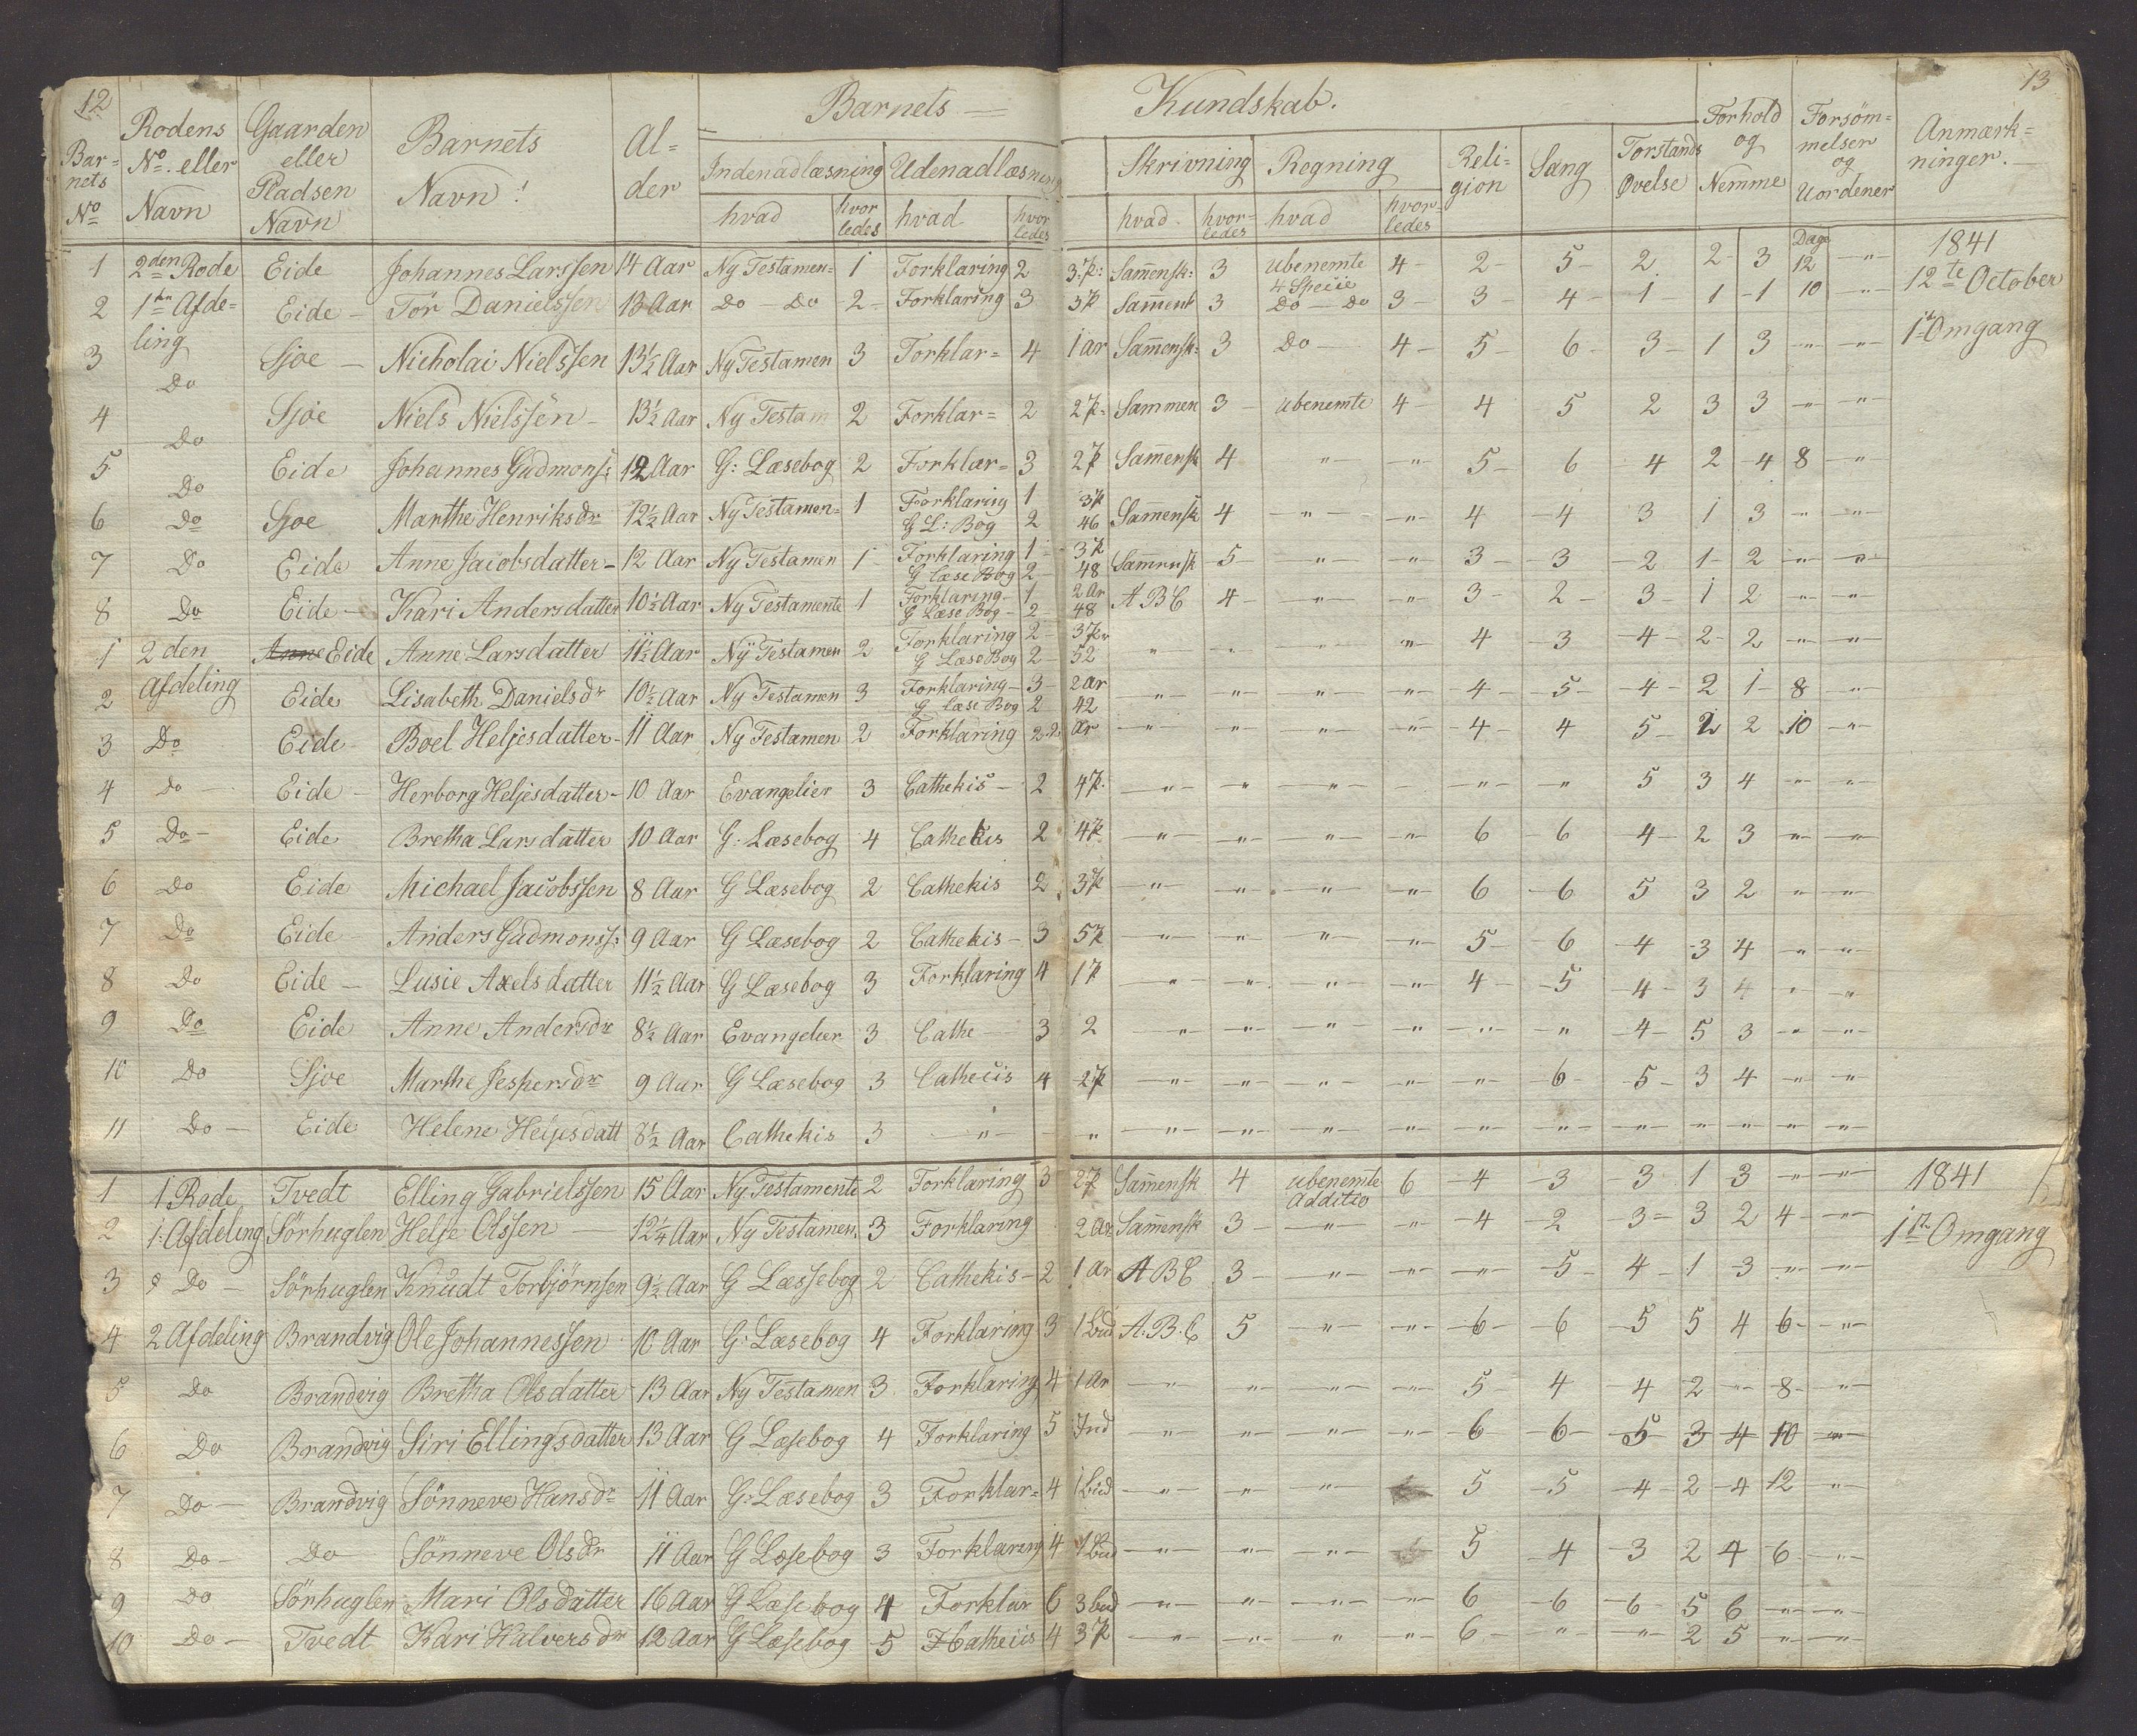 12
13
Barnets — Kundskab.
Bar=nets No | Rodens No. eller Navn | Gaarden eller Pladsen Navn | Barnets Navn! | Al=der | Indenadlæsning hvad | hvorledes | Udenadlæsning hvad | hvorledes | Skrivning hvad | hvor=ledes | Regning hvad | hvor=ledes | Reli=gion | Sang | Forstands Øvelse | Forhold og Nemme | Forsöm=melser og Uordener | Anmærk=ninger.
1 2den Rode Eide Johannes Larssen 14 Aar Ny Testamen= 1 Forklaring 2 3.p: Sam̄ensk: 3 Ubenemte 4 Specie 4 - 2 - 5 - 2 2 - 3 Dage 12 -"- 1841 12te October
2 1ste Afde= Eide - Tör Danielssen 13 Aar Do - Do - 2 - Forklaring 3 3p Sam̄ensk 3 Do - Do 3 - 3 - 4 - 1 - 1 - 1 10 -"-
3 ling Sjoe - Nicholai Nielssen 13½ Aar Ny Testamen 3 Forklar= 4 1 ar Sam̄ensk: 3 Do - 4 - 5 - 6 - 3 - 1 3 -"- -"- 1ste Omgang
Do
4 Sjoe Niels Nielssen - 13½ Aar Ny Testam 2 Forklar= 2 2p. Sammen 3 - ubenemte 4 - 4 5 2 3 3 -"- -"-
Do
5 Eide Johannes Gudmonss: 12 Aar G: Læsebog 2 Forklar= 3 2p Sam̄ensk 4 " -"- 5 - 6 - 4 2 - 4 8 -"
Do
6 Do Sjoe Marthe Henriksdr 12½ Aar Ny Testamen= 1 Forklaring 1 3p Sam̄ensk 4 -"- -"- 4 - 4 - 3 1 3 -"- -"-
G L: Bog 2 46
7 Do Eide Anne Jacobsdatter - 12 Aar Ny Testamen 1 - Forklaring 1 - 3p Sam̄ensk - 5 -"- -"- 3 - 3 - 2 1 - 2 -"- -"-
G læse Bog 2 - 48
8 Do Eide - Kari Andersdatter 10½ Aar Ny Testamente 1 Forklaring - 1 2 Ar A B C 4 - -"- -"- 3 - 2 - 3 - 1 2 -"- -"-
G Læse Bog - 2 - 48
1 2 den Anne Eide Anne Larsdatter 11½ Aar Ny Testamen 2 Forklaring 2 - 3p. -"- -"- -"- -"- 4 - 3 - 4 - 2 - 2 -"- -"-
G Læse Bog 2 - 52
2 Afdeling Eide Lisabeth Danielsdr 10½ Aar Ny Testamen 3 Forklaring - 3 - 2 ar -"- -"- -"- -"- 4 - 5 - 4 - 2 1 - 8 -"-
G læse Bog 2 42
3 Do Eide - Boel Heljesdatter - 11 Aar Ny Testamen 2 Forklaring 2 2. Ar -"- -"- -"- -"- 4 - 4 5 - 2 2 10 -"-
4 Do - Eide - Herborg Heljesdatter - 10 Aar Evangelier 3 Cathekis - 2 4p. -"- -"- -"- - -"- -"- 5 3 4 -"- -"-
5 Do - Eide Bretha Larsdatter 10 Aar G: Læsebog 4 Cathekis 2 4p -"- -"- -"- -"- 6 6 - 4 - 2 3 -"- -"-
6 Do Eide Michael Jacobssen 8 Aar G Læsebog 2 Cathekis 2 3p -"- -"- -"- -"- 6 - 6 5 3 2 -"- -"-
7 Do Eide Anders Gudmonss: 9 Aar G Læsebog 2 Cathekis - 3 5p -"- -"- -"- -"- 5 - 6 - 4 - 3 4 -"- -"-
8 Do Eide - Lusie Axelsdatter 11½ Aar G Læsebog 3 Forklaring 4 1p -"- -"- -"- -"- 4 - 5 - 4 - 3 4 -"- -"-
9 Do Eide Anne Andersdr 8½ Aar Evangelier 3 Cathe - 3 2 -"- -"- -"- -"- -"- -"- 4 - 5 3 -"- -"-
10 Do Sjoe Marthe Jespersdr 9 Aar G Læsebog 3 Cathecis 4 2p -"- -"- -"- -"- -"- 6 - 5 - 3 4 -"- -"-
11 Do - Eide Helene Heljesdatt 8½ Aar Cathekis 3 -"- -"- -"- -"- -"- -"- -"- -"- -"- -"- -"- -"- -"-
1 1 Rode Tvedt Elling Gabrielssen 15 Aar Ny Testamente 2 Forklaring 3 2p Sam̄ensk 4 ubenemte Additio 6 - 4 - 3 - 3 1 3 -"- -"- 1841
2 1. Afdeling Sörhuglen Helje Olssen - 12¼ Aar Ny Testamen. 3 Forklaring 2 Ar Sam̄ensk 3 - -"- -"- 4 - 2 - 3 - 3 2 4 - -"- 1ste Omgang
3 Do - Sörhuglen Knudt Torbjörnsen 9½ Aar G Læssebog 2 Cathekis - 2 1 Ar A B C 3 - -"- -"- -"- 5 - 4 - 1 - 3 -"- -"-
4 2 Afdeling Brandvig Ole Johannessen 10 Aar G: Læsebog 4 Forklaring 3 1 bud A. B. C 5 -"- -"- 6 - 6 - 5 5 4 6 - -"-
5 Do Brandvig Bretha Olsdatter 13 Aar Ny Testamen 3 Forklaring 4 1 Ar -"- -"- -"- -"- 5 - 4 - 4 2 -"- 8 - -"-
6 Do Brandvig Siri Ellingsdatter 13 Aar G Læsebog 4 Forklaring 5 Ind -"- -"- -"- -"- 6 - 6 - 5 - 3 - 4 - 10 -"-
7 Do - Brandvig Sönneve Hansdr 11 Aar G: Læsebog 3 Forklar= 4 1 bud -"- -"- -"- 5 - 5 - 4 - 2 - 4 12 -"-
8 Do - Do Sönneve Olsdr 11 Aar G Læsebog 3 Forklaring 4 1 bud -"- -"- -"- 5 - 4 - 3 2 4 - 6 -"-
9 Do Sörhuglen Mari Olsdatter 16 Aar G Læsebog 4 Forklar 6 3 bud -"- -"- -"- -"- 6 - 6 - 6 - 5 6 -"- -"-
10 Do - Tvedt Kari Halversdr 12 Aar G Læsebog 5 Catheiis 4 3p -"- -"- -"- -"- 6 - -"- -"- 2 5 -"- -"-